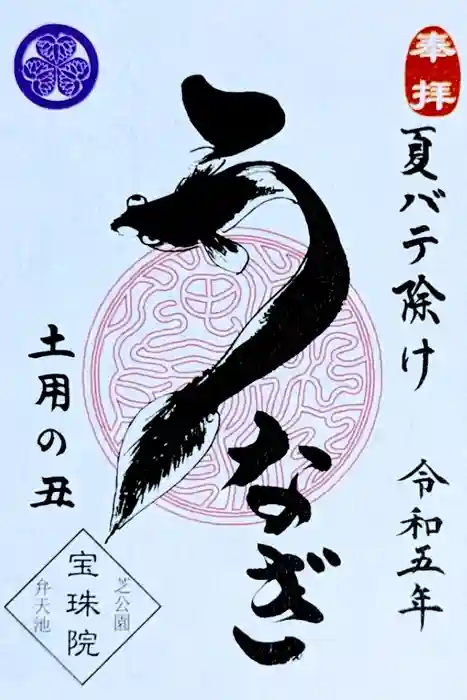 奉拝
夏バテ除け
令和五年
うなぎ
土用の丑
芝公園
宝珠院
弁天池